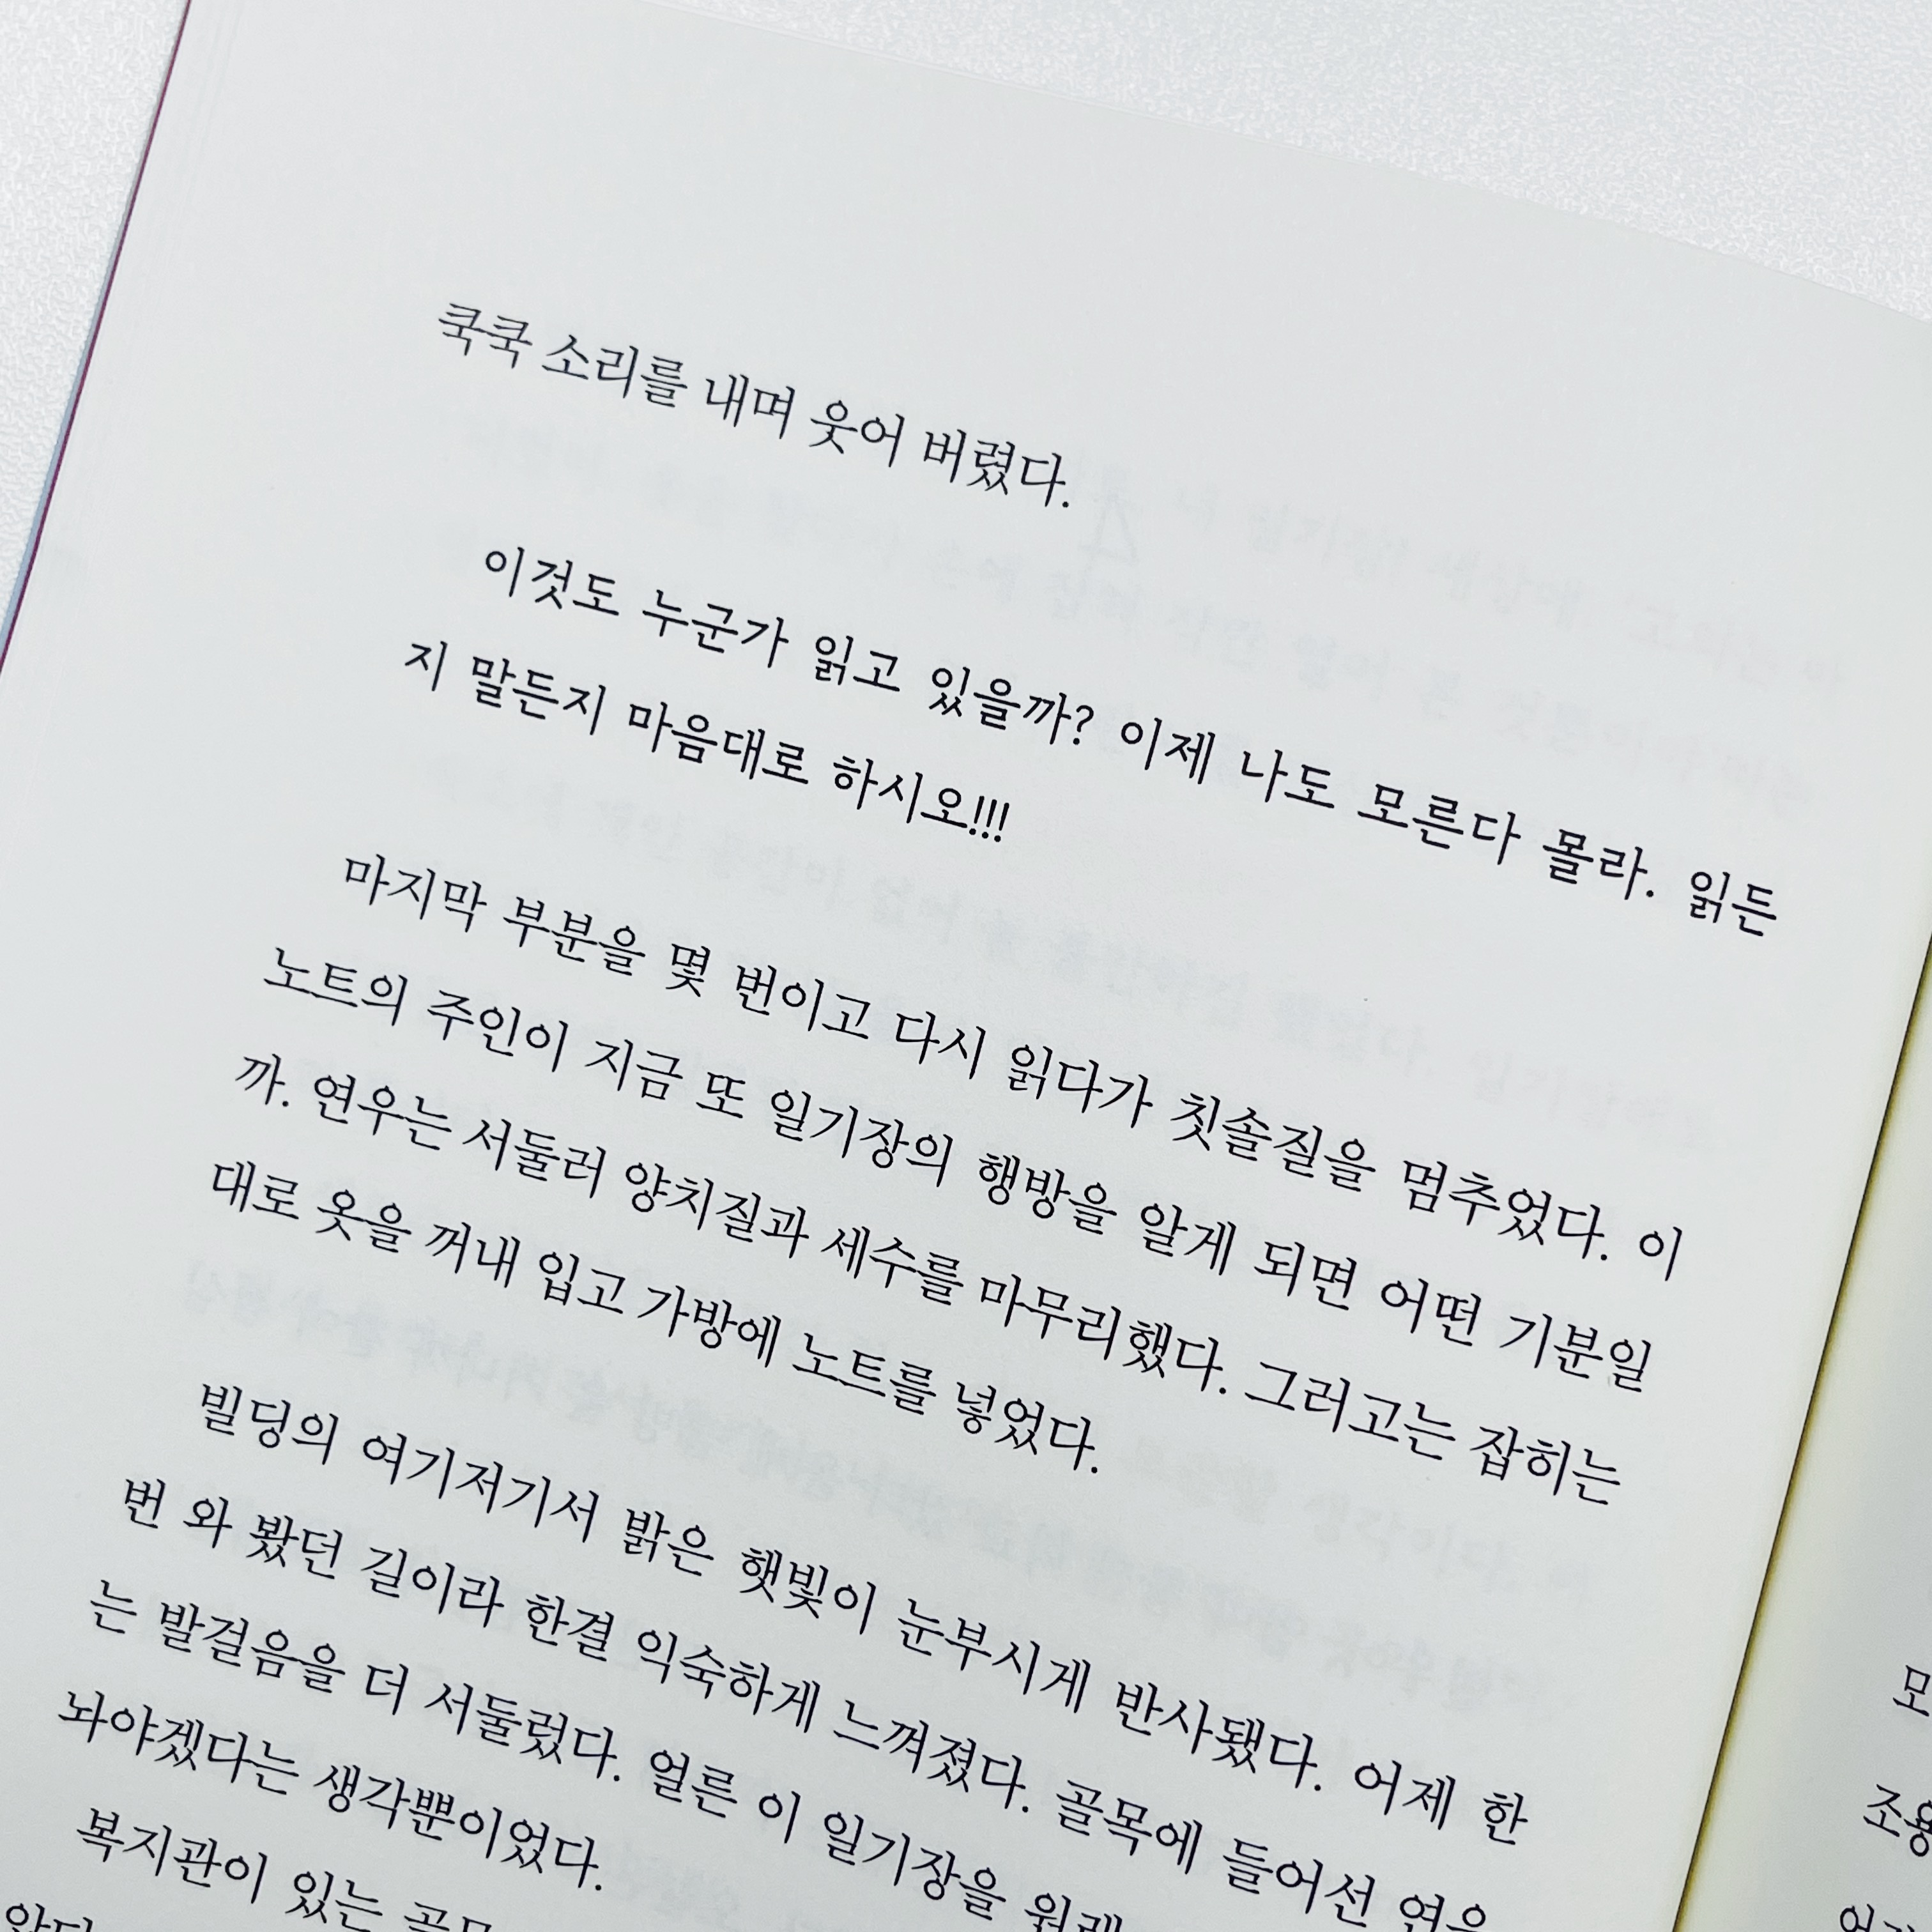 쿡쿡 소리를 내며 웃어 버렸다.
이것도 누군가 읽고 있을까? 이제 나도 모른다 몰라. 읽든
지 말든지 마음대로 하시오!!!
마지막 부분을 몇 번이고 다시 읽다가 칫솔질을 멈추었다. 이
노트의 주인이 지금 또 일기장의 행방을 알게 되면 어떤 기분일
까. 연우는 서둘러 양치질과 세수를 마무리했다. 그러고는 잡히는
대로 옷을 꺼내 입고 가방에 노트를 넣었다.
빌딩의 여기저기서 밝은 햇빛이 눈부시게 반사됐다. 어제 한
번 와 봤던 길이라 한결 익숙하게 느껴졌다. 골목에 들어선 연우
는 발걸음을 더 서둘렀다. 얼른 이 일기장을
놔야겠다는 생각뿐이었다.
복지관이 있는